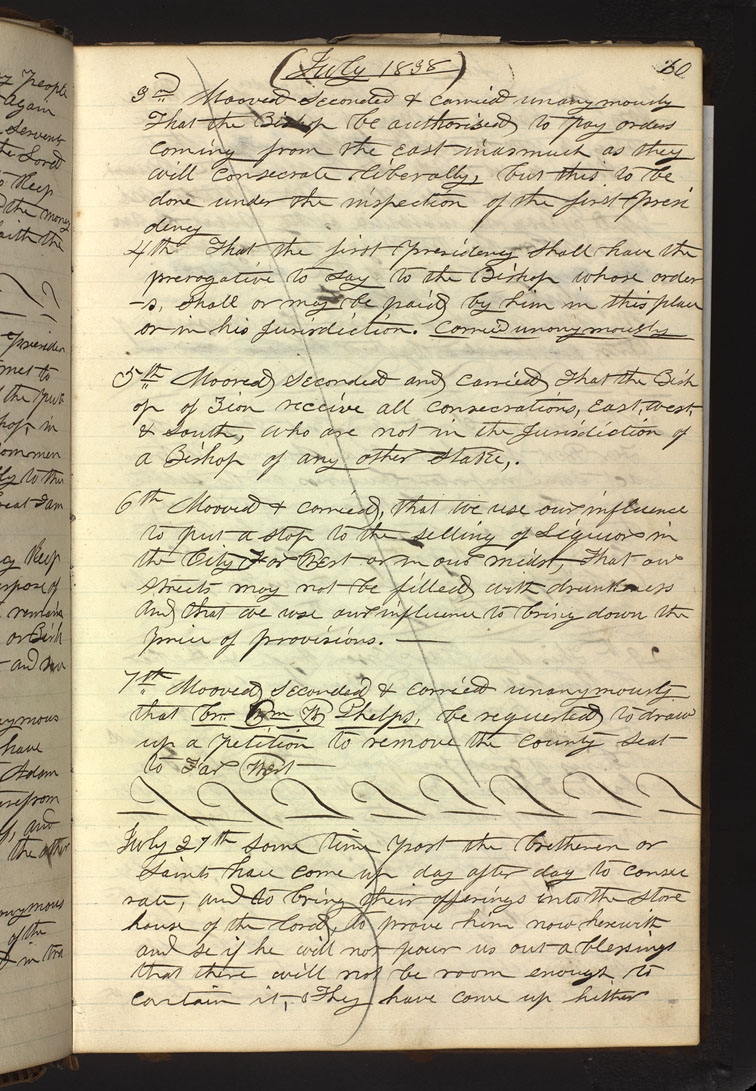 (July 1838) 60
3rd Mooved Seconded & carried unanymously
That the Bishop be authorised to pay orders
coming from the east inasmuch as they
will consecrate liberally, but this to be
done under the inspection of the first Presi
dency
4th That the first Presidency shall have the
prerogative to say to the Bishop whose order
-s, shall or may be paid by him in this place
or in his Jurisdiction. Carried unanymously
5th Mooved Seconded and carried That the Bish
op of Zion receive all consecrations, east, west,
& south, who are not in the Jurisdiction of
a Bishop of any other Stake,.
6th Mooved & carried, that we use our influence
to put a stop to the selling of Liquor in
the City Far West or in our midst, That our
streets may not be filled with drunkeness
and that we use our influence to bring down the
price of provisions. —
7th Mooved Seconded & carried unanymously
that br. Wm W Phelps, be requested to draw
up a petition to remove the county seat
to Far West
July 27th Some time past the bretheren or
Saints have come up day after day to consec
rate, and to bring their offerings into the store
house of the Lord, to prove him now herewith
and se if he will not pour us out a blessings
that there will not be room enough to
contain it, They have come up hither
y People
again
servent
the Lord
keep
the money
faith the
Presiden
met to
in
keep
remain
or Bish
and
nymous
have
Adam
and
the other
nymous
of the